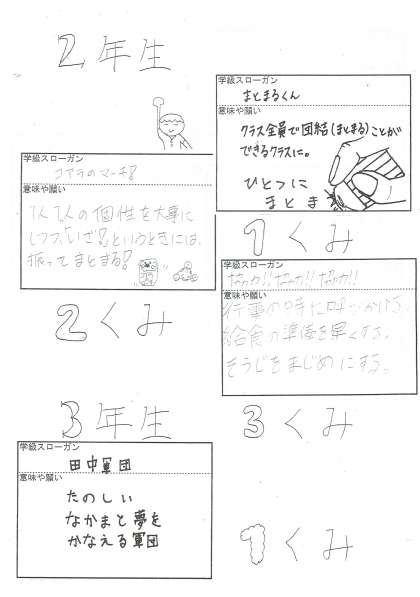 2年生
学級スローガン
まとまるくん
意味や願い
クラス全員で団結(まとまる)ことが
できるクラスに。
ひとつに
まとま
1くみ
学級スローガン
コアラのマーチ!
意味や願い
1人1人の個性を大事に
しつつ、「いざ!」というときには、
振ってまとまる!
2くみ
学級スローガン
意味や願い
行事の時に呼びかける。
給食の準備を早くする。
そうじをまじめにする。
3くみ
3年生
学級スローガン
田中軍団
意味や願い
たのしい
なかまと夢を
かなえる軍団
1くみ